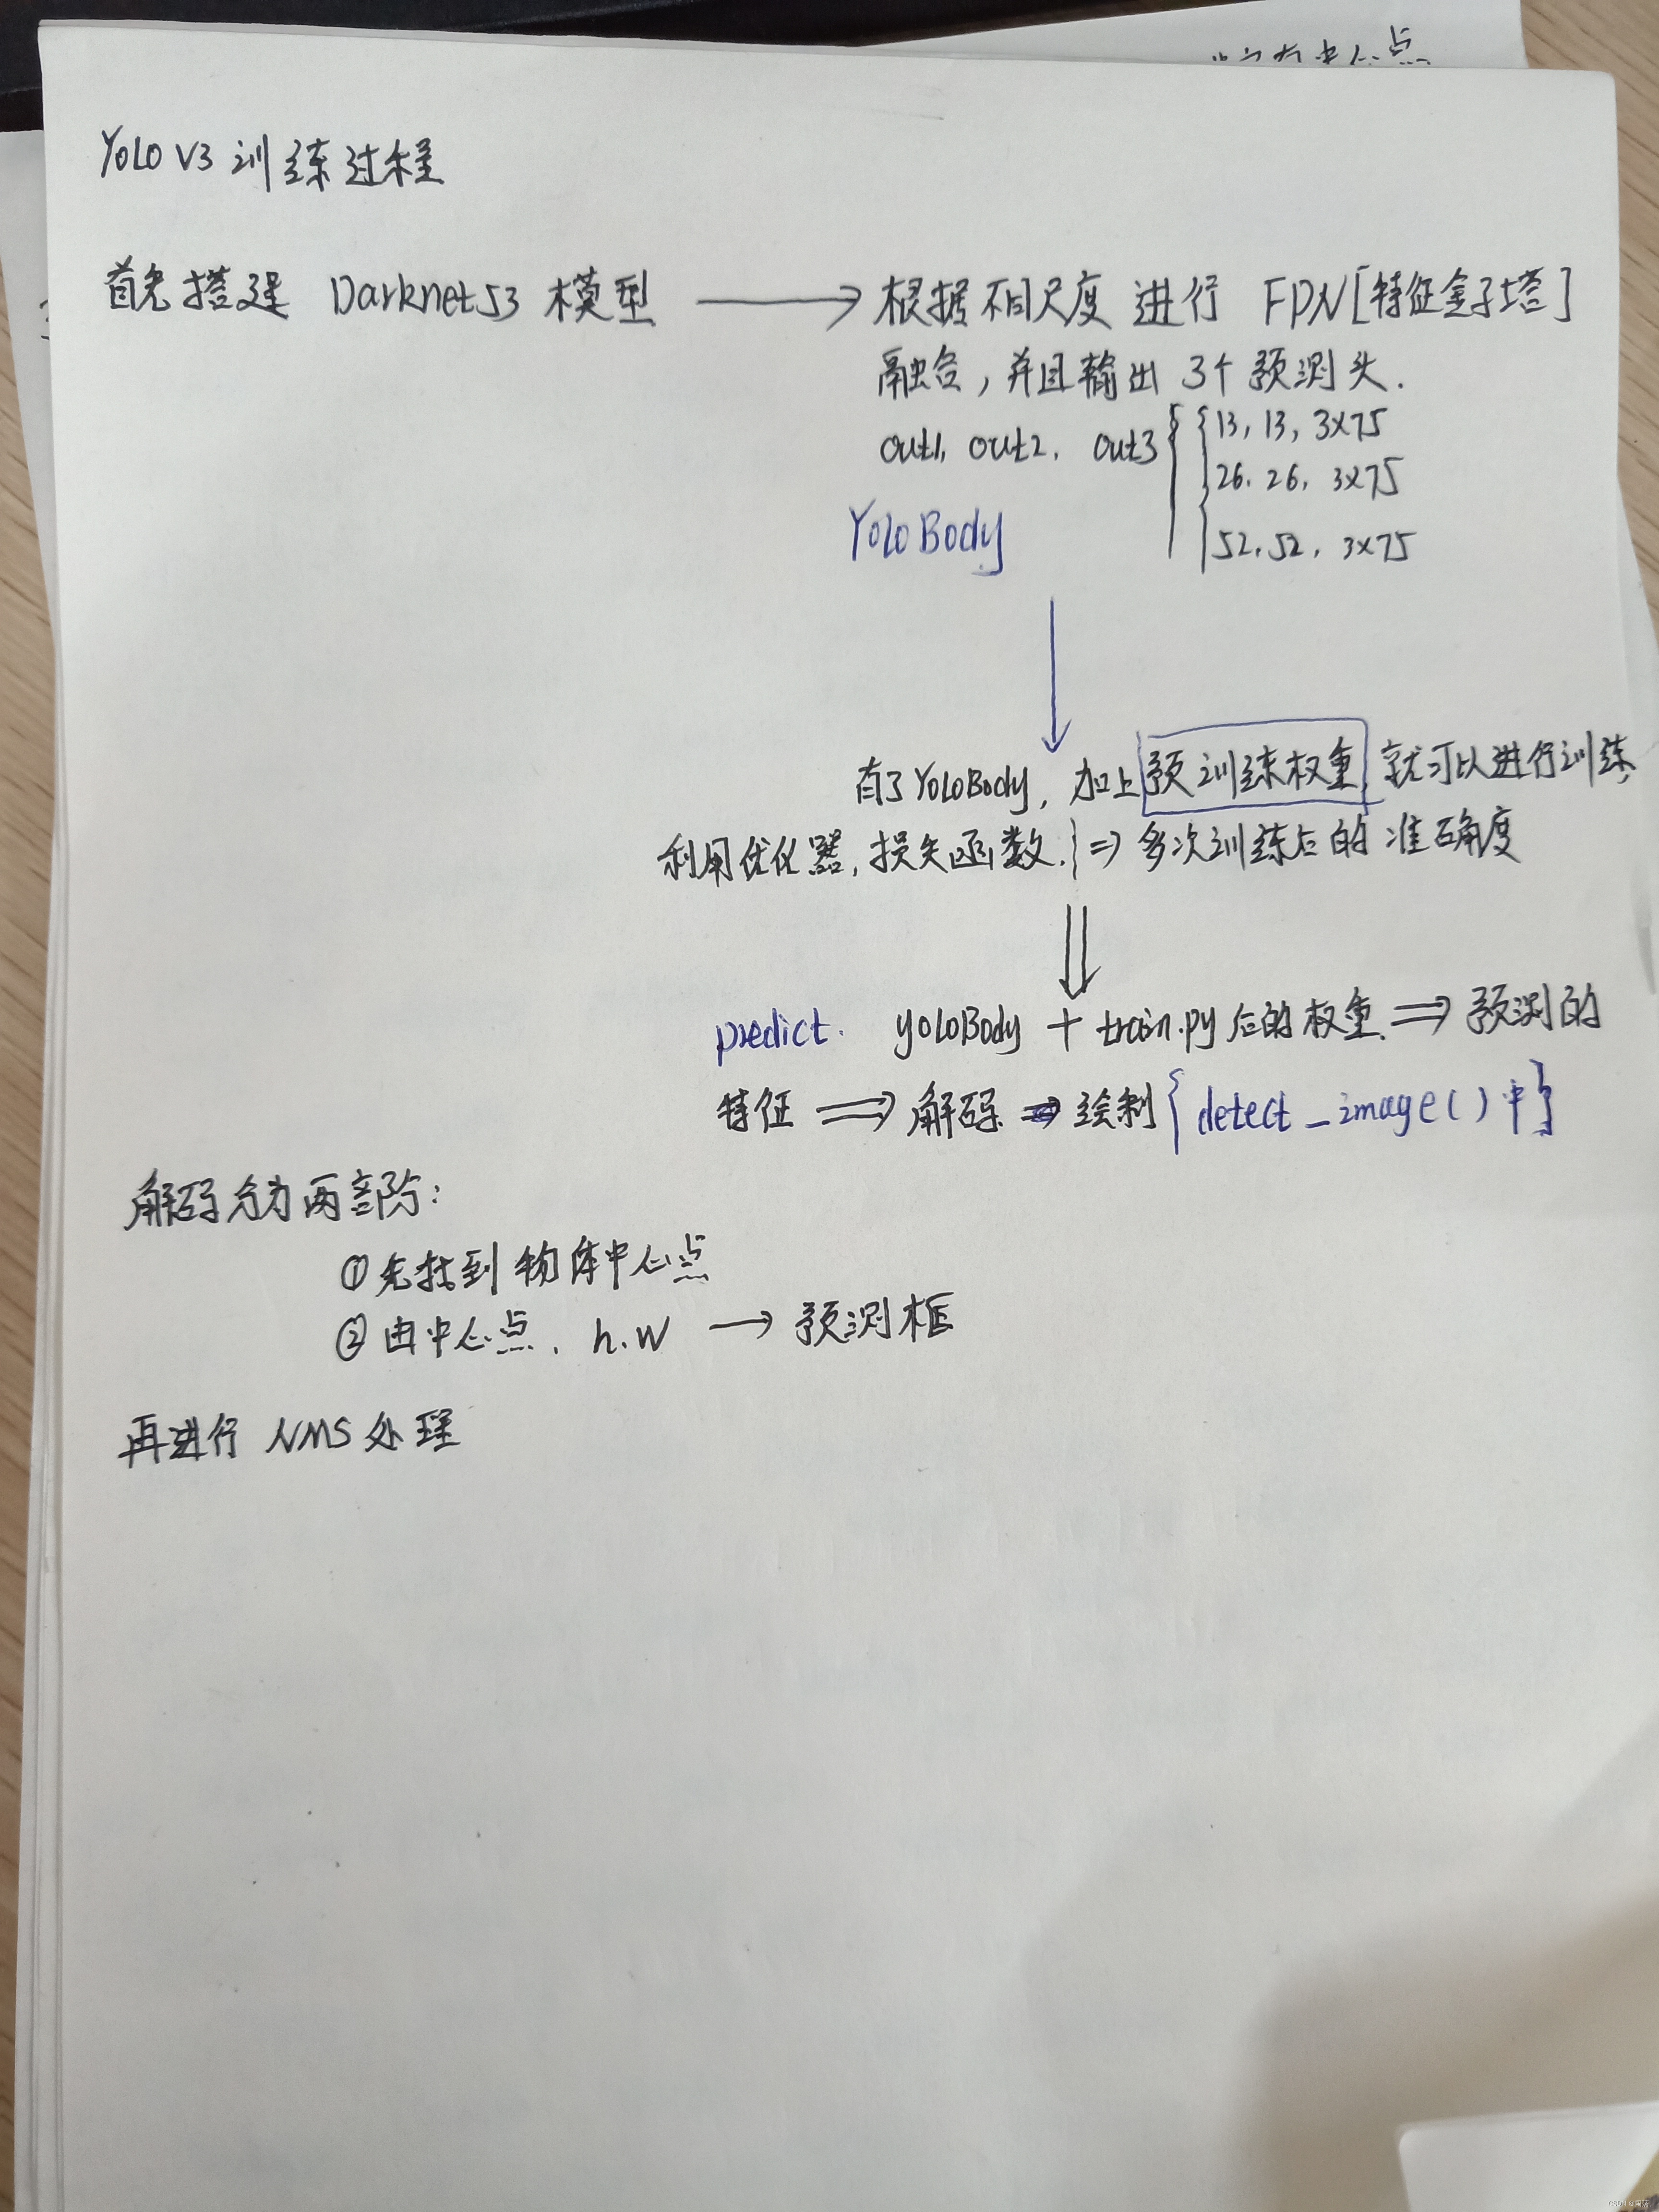 中心点
YOLO V3 训练过程
首先搭建 Darknet53 模型 → 根据不同尺度 进行 FPN[特征金子塔]
融合,并且输出 3个预测头.
out1, out2, out3 { { 13, 13, 3×75
26, 26, 3×75
52, 52, 3×75
Yolo Body
有了YOLOBody, 加上预训练权重, 就可以进行训练,
利用优化器,损失函数.} ⇒ 多次训练后的 准确度
predict. yoloBody + train.py后的权重. ⇒ 预测的
特征 ⇒ 解码 ⇒ 绘制 { detect_image()中}
解码分为两部分:
①先找到物体中心点
②由中心点, h.w → 预测框
再进行 NMS 处理